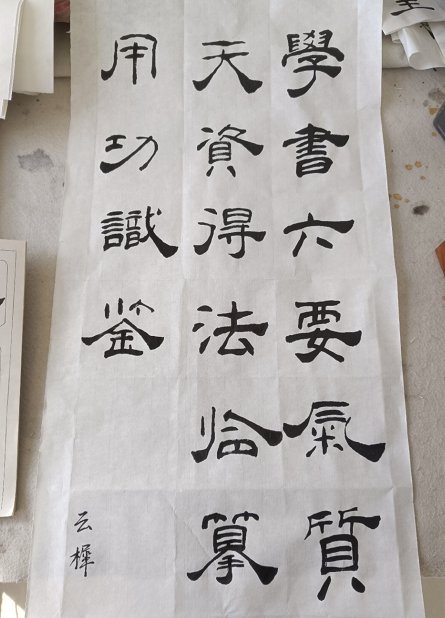 學書六要氣質
天資得法临摹
用功識鉴
云樺